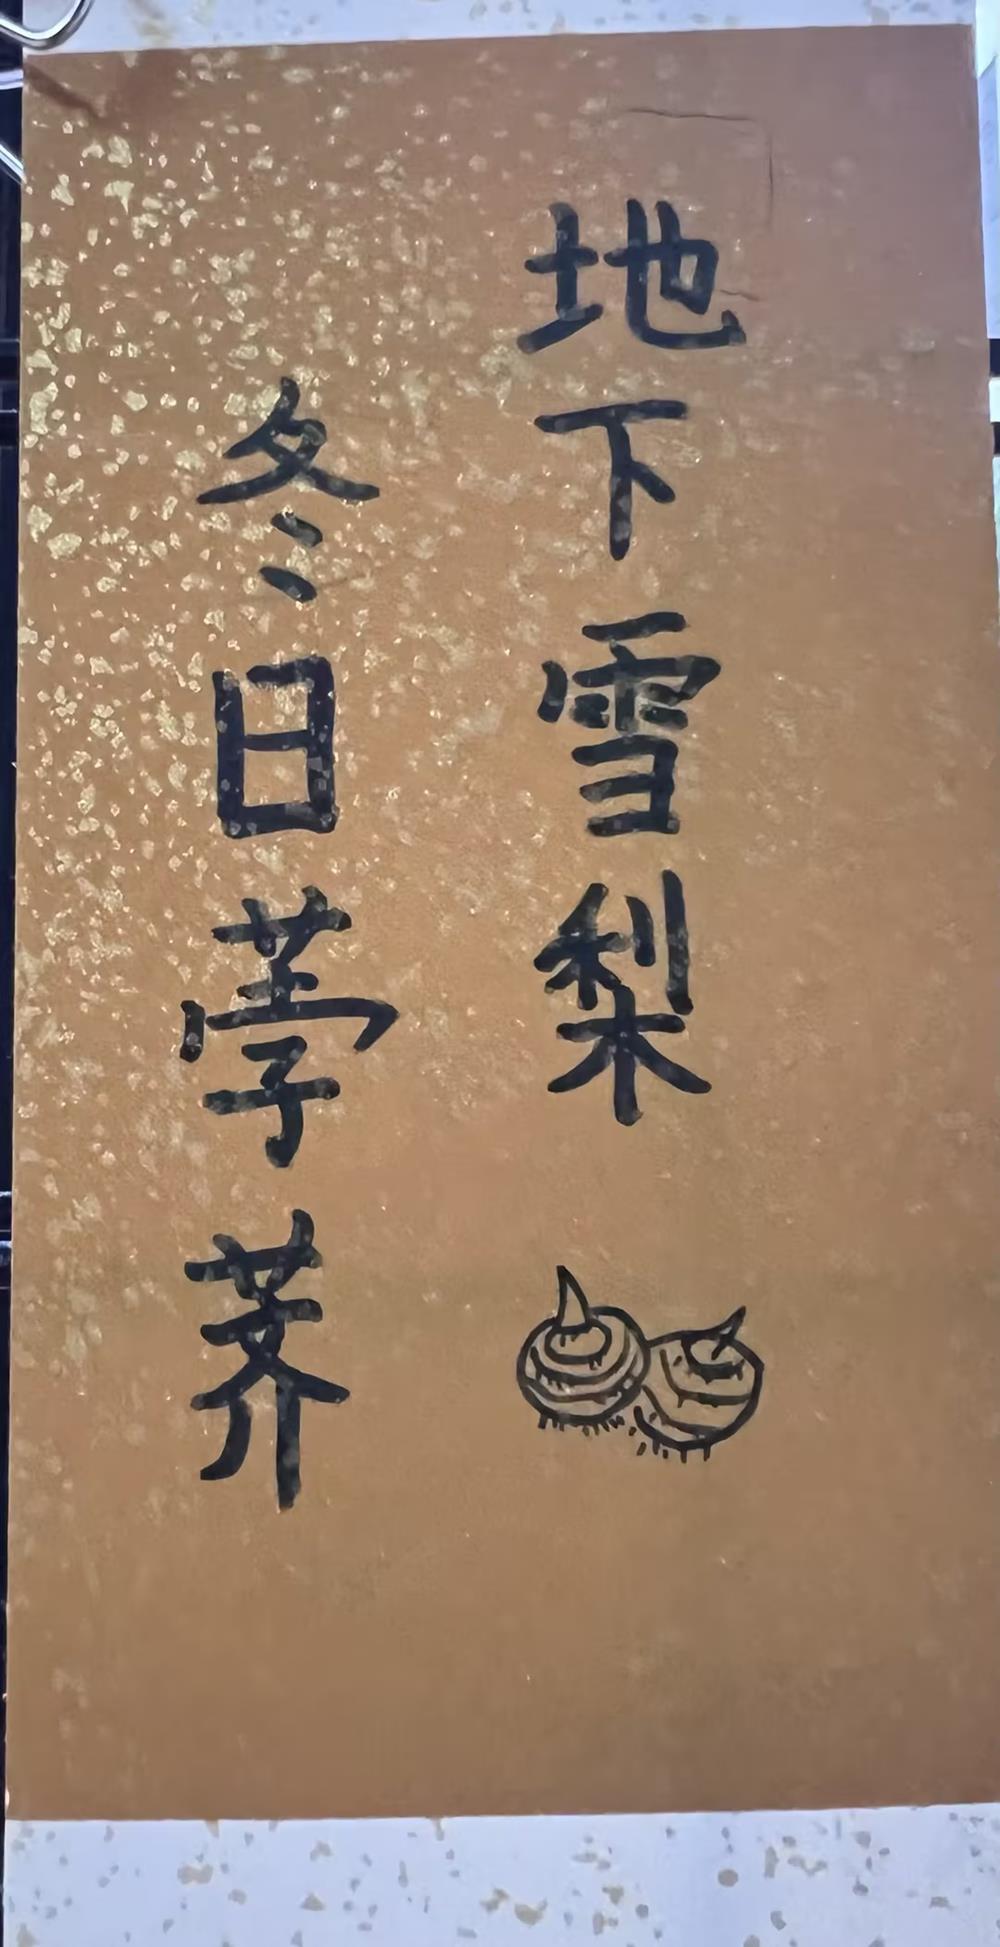 地下雪梨
冬日荸荠